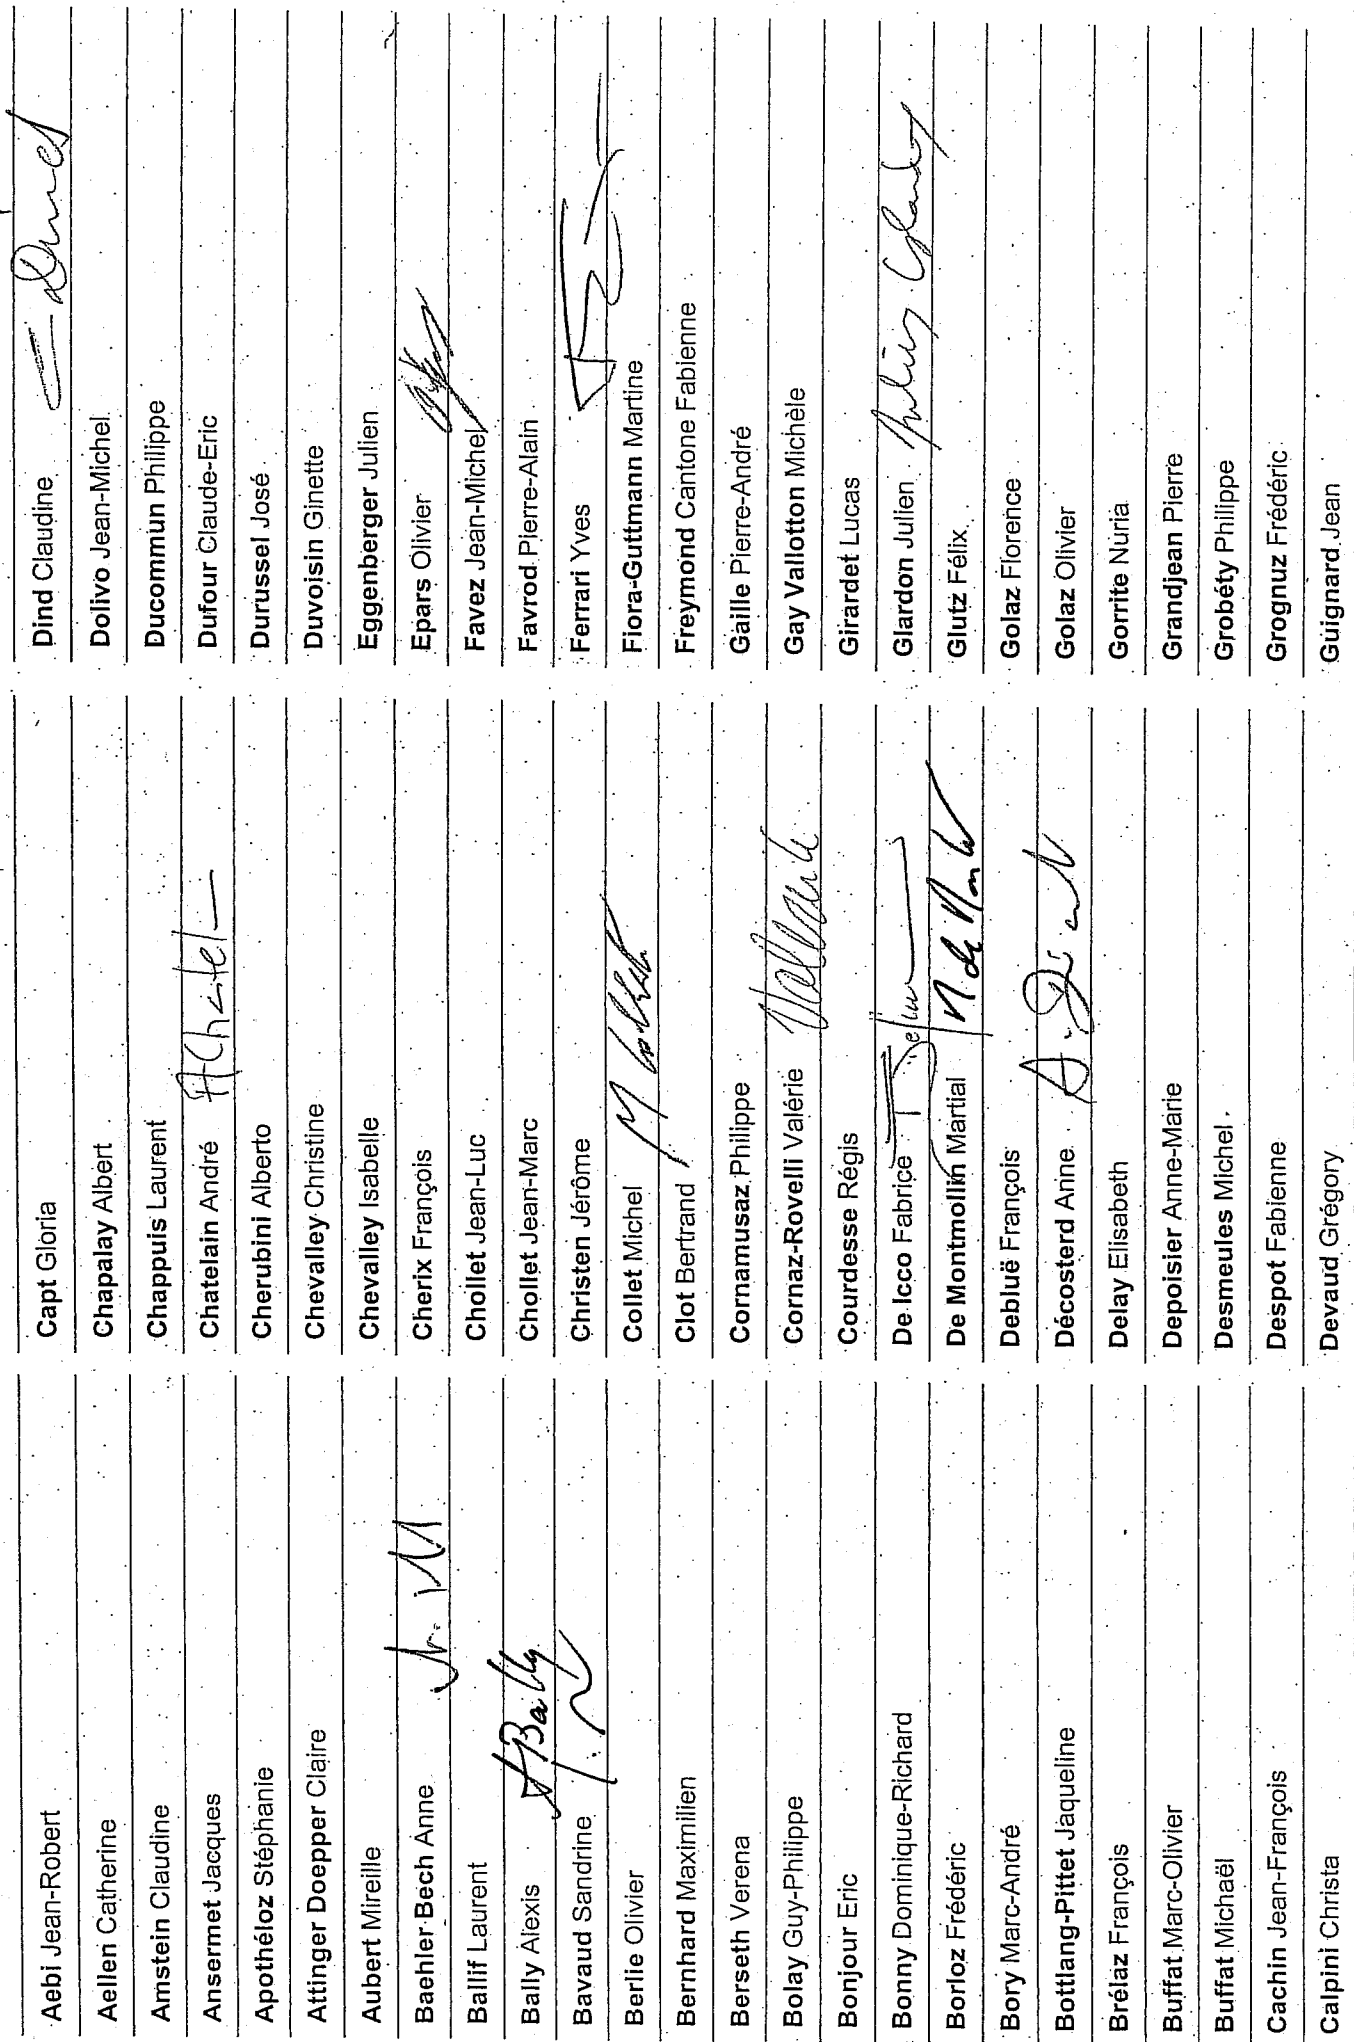 Aebi Jean-Robert
Aellen Catherine
Amstein Claudine
Ansermet Jacques
Apothéloz Stéphanie
Attinger Doepper Claire
Aubert Mireille
Baehler Bech Anne
Ballif Laurent
Bally Alexis ABally
Bavaud Sandrine
Berlie Olivier
Bernhard Maximilien
Berseth Verena
Bolay Guy-Philippe
Bonjour Eric
Bonny Dominique-Richard
Borloz Frédéric
Bory Marc-André
Bottlang-Pittet Jaqueline
Brélaz François
Buffat Marc-Olivier
Buffat Michaël
Cachin Jean-François
Calpini Christa
Capt Gloria
Chapalay Albert
Chappuis Laurent
Chatelain André AChatel
Cherubini Alberto
Chevalley Christine
Chevalley Isabelle
Cherix François
Chollet Jean-Luc
Chollet Jean-Marc
Christen Jérôme
Collet Michel M Collet
Clot Bertrand
Cornamusaz Philippe
Cornaz-Rovelli Valérie
Courdesse Régis
De Icco Fabrice
De Montmollin Martial
Debluë François
Décosterd Anne
Delay Elisabeth
Depoisier Anne-Marie
Desmeules Michel
Despot Fabienne
Devaud Grégory
Dind Claudine
Dolivo Jean-Michel
Ducommun Philippe
Dufour Claude-Eric
Durussel José
Duvoisin Ginette
Eggenberger Julien
Epars Olivier
Favez Jean-Michel
Favrod Pierre-Alain
Ferrari Yves
Fiora-Guttmann Martine
Freymond Cantone Fabienne
Gaille Pierre-André
Gay Vallotton Michèle
Girardet Lucas
Glardon Julien Julien Glardon
Glutz Félix
Golaz Florence
Golaz Olivier
Gorrite Nuria
Grandjean Pierre
Grobéty Philippe
Grognuz Frédéric
Guignard Jean